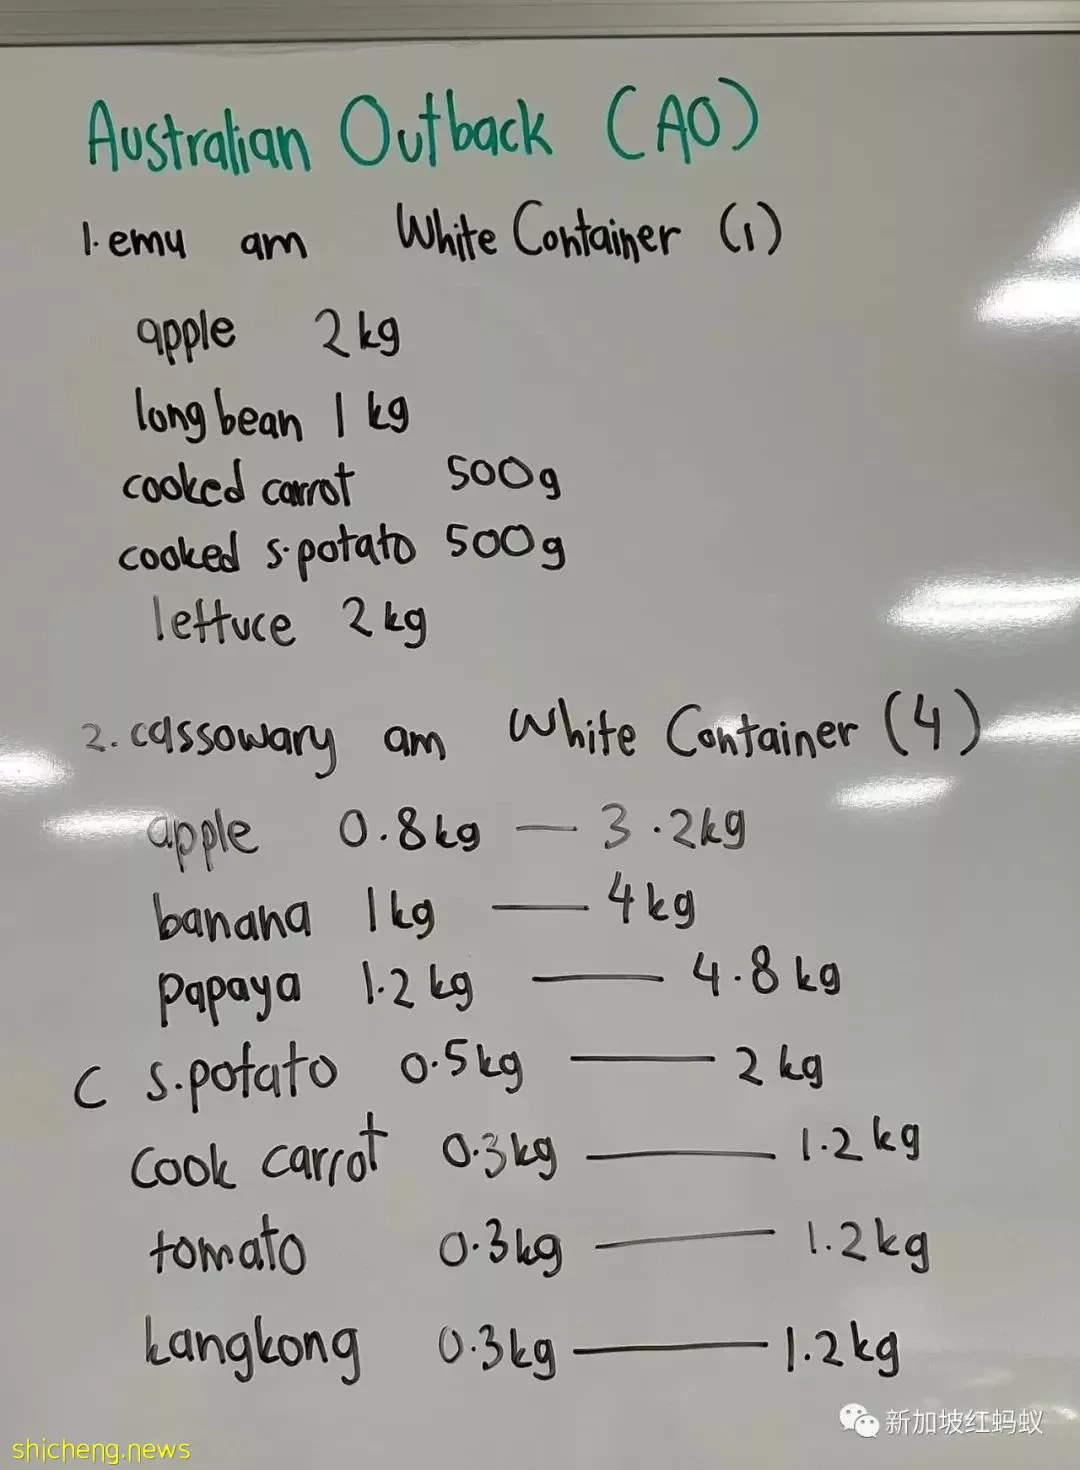 Australian Outback (AO)
1. emu am White Container (1)
apple 2kg
long bean 1 kg
cooked carrot 500g
cooked s.potato 500g
lettuce 2kg
2. cassowary am White Container (4)
apple 0.8kg — 3.2kg
banana 1kg — 4kg
papaya 1.2kg — 4.8kg
C s.potato 0.5kg — 2kg
cook carrot 0.3kg — 1.2kg
tomato 0.3kg — 1.2kg
kangkong 0.3kg — 1.2kg
新加坡红蚂蚁
shicheng.news